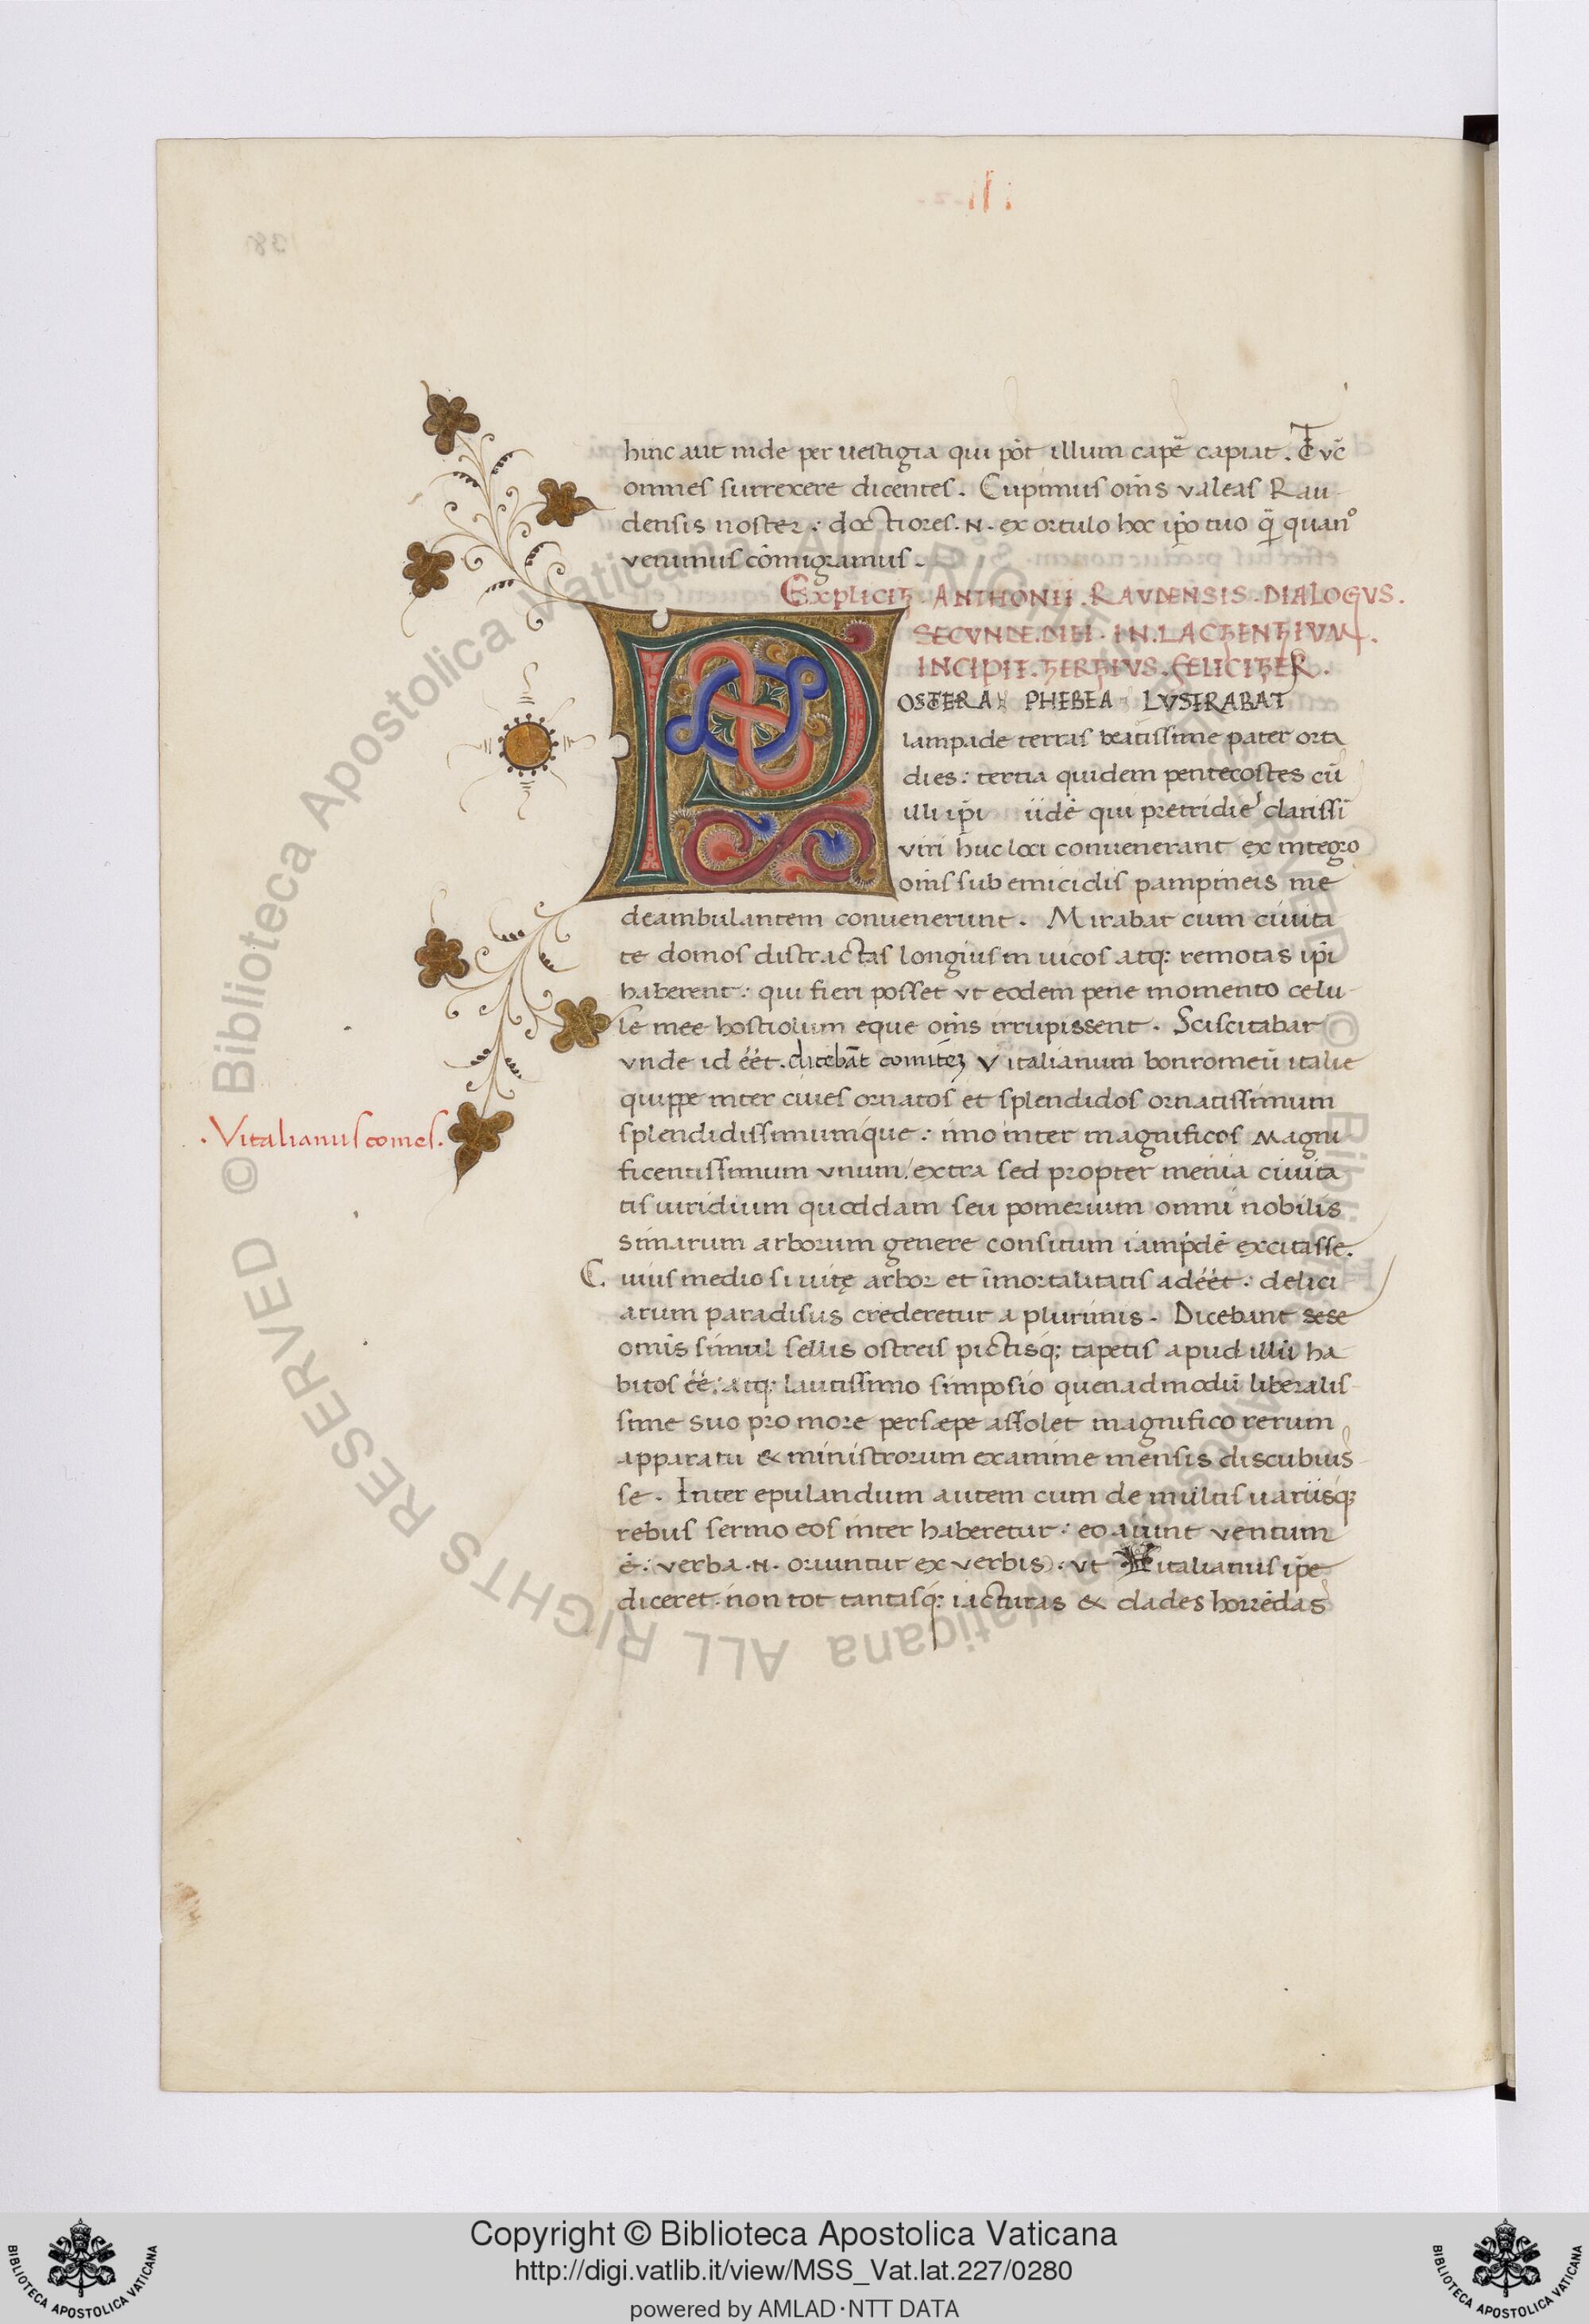 hinc aut inde per uestigia qui pōt illum capē capiat. Tūc
omnes surrexere dicentes. Cupimus om̄s valeas Rau-
densis noster: doctiores .N. ex ortulo hoc ip̄o tuo q̄ quan°
venimus cōmigramus.
EXPLICIT. ANTHONII. RAVDENSIS. DIALOGVS.
SECVNDE. DIEI. IN. LACTENTIVM.
INCIPIT. TERTIVS. FELICITER.
POSTERA PHEBEA LVSTRABAT
lampade terras beatissime pater orta
dies: tertia quidem pentecostes cū
illi ip̄i iidē qui pretridie clarissī
viri huc loci conuenerant ex integro
om̄s sub emicidis pampineis me
deambulantem conuenerunt. Mirabar cum ciuita
te domos distractas longius in uicos atq: remotas ip̄i
haberent: qui fieri posset vt eodem pene momento celu-
le mee hostiolum eque om̄s irrupissent. Sciscitabar
vnde id éét. dicebāt comitēz Vitalianum bonromeū italie
quippe inter ciues ornatos et splendidos ornatissimum
splendidissimumque: imo inter magnificos Magni
ficentissimum vnum/ extra sed propter menia ciuita
tis uiridium quoddam seu pomerium omni nobilis
simarum arborum genere consitum iampdē excitasse.
Cuius medio si uitę arbor et īmortalitatis adéét: delici
arum paradisus crederetur a plurimis. Dicebant sese
om̄is simul sellis ostreis pictisq; tapetis apud illū ha
bitos éé: atq; lautissimo simposio quenadmodū liberalis-
sime suo pro more persæpe assolet magnifico rerum
apparatu & ministrorum examine mensis discubuis-
se. Inter epulandum autem cum de multis uariisq;
rebus sermo eos inter haberetur: eo aiunt ventum
ē: verba .N. oriuntur ex verbis: vt Vitalianus ip̄e
diceret. non tot tantasq; iacturas & clades horrēdas
.Vitalianus comes.
Copyright © Biblioteca Apostolica Vaticana
http://digi.vatlib.it/view/MSS_Vat.lat.227/0280
powered by AMLAD·NTT DATA
BIBLIOTECA APOSTOLICA VATICANA
BIBLIOTECA APOSTOLICA VATICANA
© Biblioteca Apostolica Vaticana ALL RIGHTS RESERVED
© Biblioteca Apostolica Vaticana ALL RIGHTS RESERVED